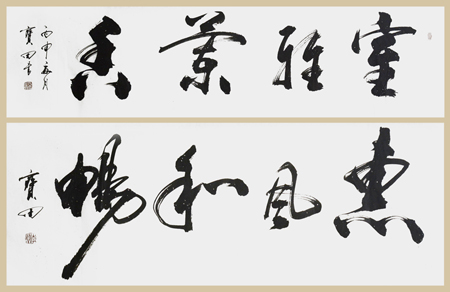 室雅蘭香
丙申月
寶田書
惠風和暢
寶田